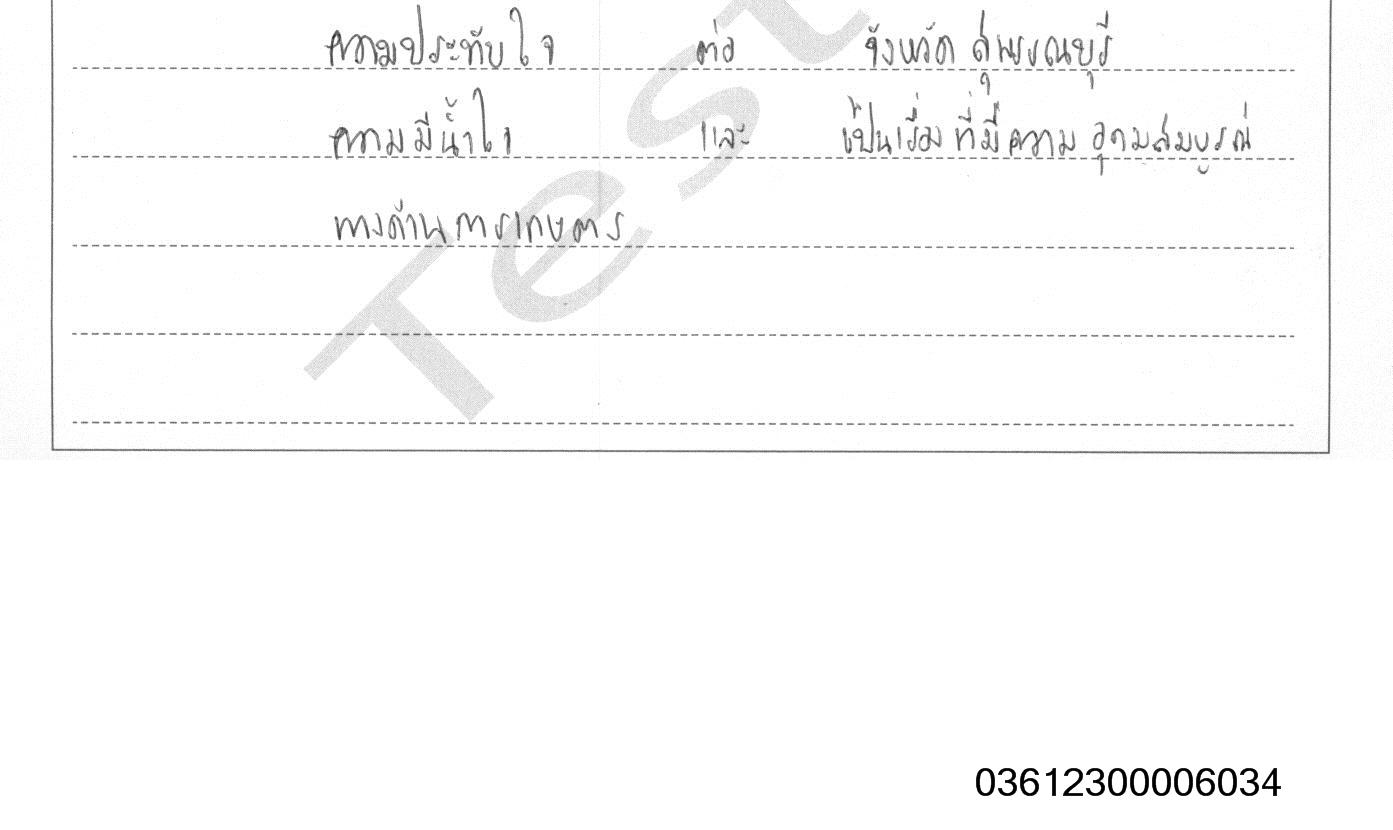 ความประทับใจ ต่อ จังหวัด สุพรรณบุรี
ความมีน้ำใจ และ เป็นเรื่อง ที่มีความ อุดมสมบูรณ์
ทางด้านการเกษตร
Test
03612300006034